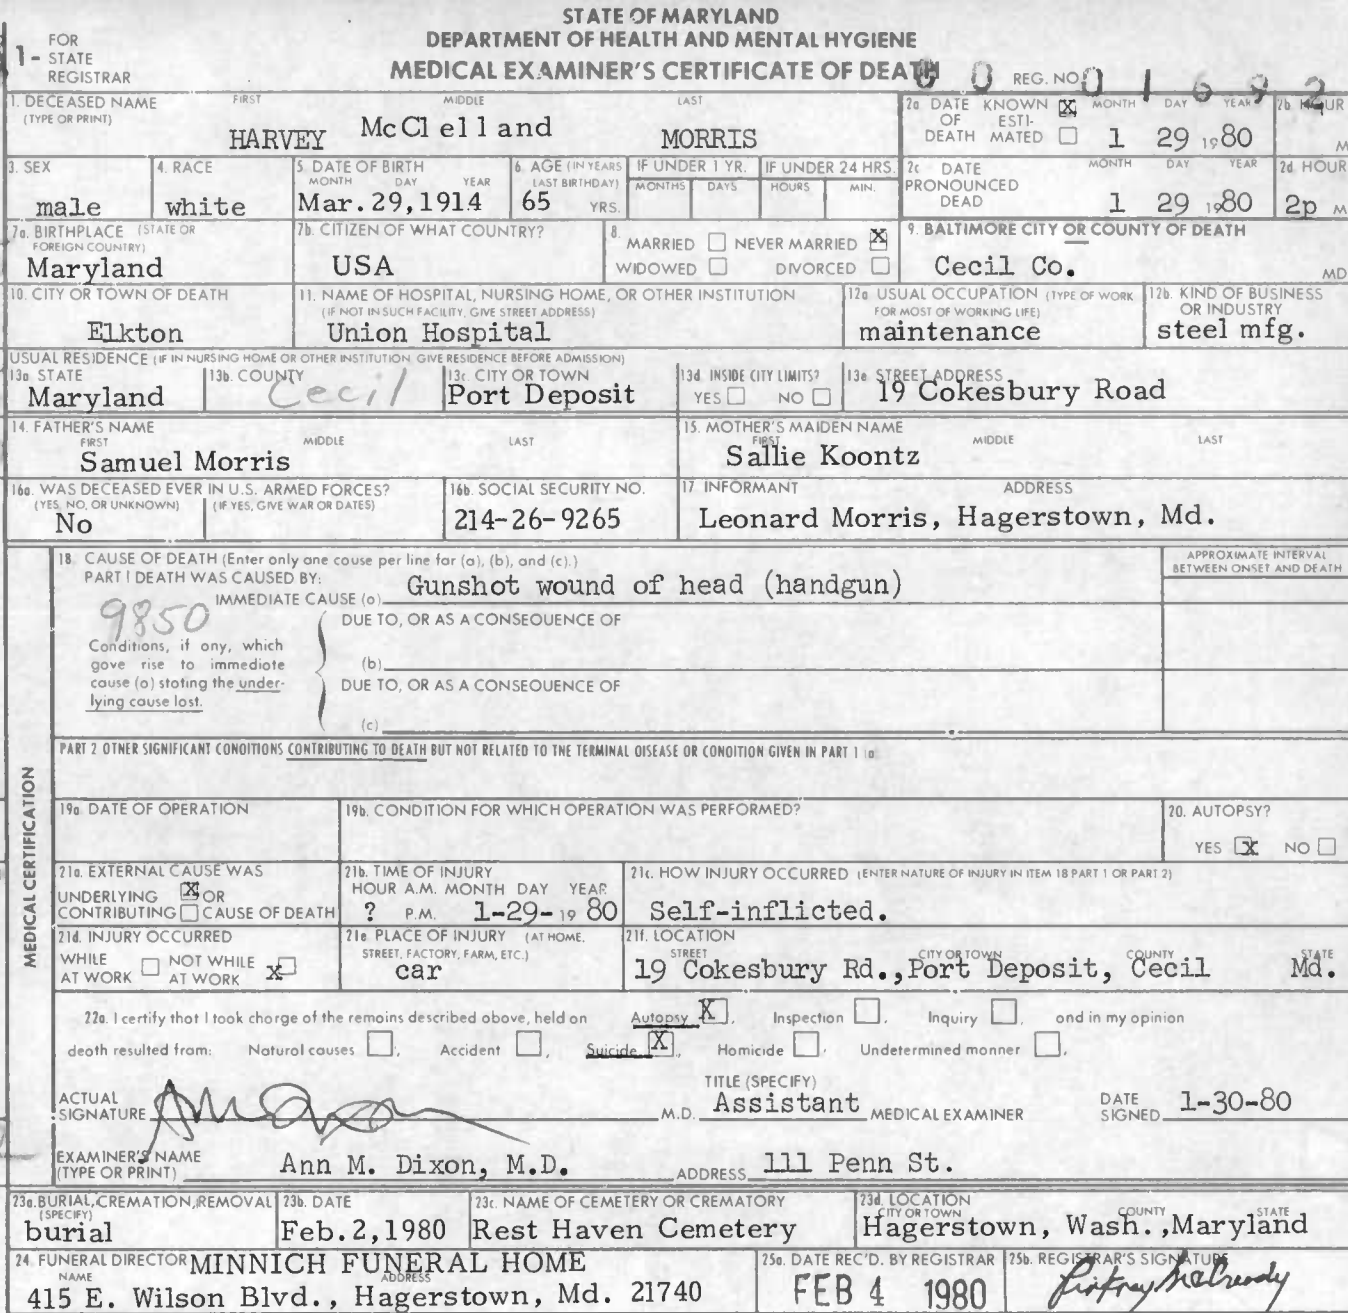 STATE OF MARYLAND
DEPARTMENT OF HEALTH AND MENTAL HYGIENE
MEDICAL EXAMINER'S CERTIFICATE OF DEATH
1- FOR STATE REGISTRAR
REG. NO. 01692
1. DECEASED NAME (TYPE OR PRINT) FIRST MIDDLE LAST
HARVEY McClelland MORRIS
2a DATE OF DEATH KNOWN X ESTIMATED MONTH DAY YEAR 2b. HOUR
1 29 1980 M
3. SEX 4. RACE 5. DATE OF BIRTH MONTH DAY YEAR 6. AGE (IN YEARS LAST BIRTHDAY) IF UNDER 1 YR. MONTHS DAYS IF UNDER 24 HRS. HOURS MIN.
male white Mar. 29, 1914 65 YRS.
2c DATE PRONOUNCED DEAD MONTH DAY YEAR 2d HOUR
1 29 1980 2p M
7a. BIRTHPLACE (STATE OR FOREIGN COUNTRY) 7b. CITIZEN OF WHAT COUNTRY?
Maryland USA
8. MARRIED NEVER MARRIED X
WIDOWED DIVORCED
9. BALTIMORE CITY OR COUNTY OF DEATH
Cecil Co. MD
10. CITY OR TOWN OF DEATH
Elkton
11. NAME OF HOSPITAL, NURSING HOME, OR OTHER INSTITUTION
(IF NOT IN SUCH FACILITY, GIVE STREET ADDRESS)
Union Hospital
12a USUAL OCCUPATION (TYPE OF WORK FOR MOST OF WORKING LIFE)
maintenance
12b. KIND OF BUSINESS OR INDUSTRY
steel mfg.
USUAL RESIDENCE (IF IN NURSING HOME OR OTHER INSTITUTION GIVE RESIDENCE BEFORE ADMISSION)
13a STATE 13b. COUNTY 13c. CITY OR TOWN 13d INSIDE CITY LIMITS? YES NO 13e STREET ADDRESS
Maryland Cecil Port Deposit 19 Cokesbury Road
14. FATHER'S NAME FIRST MIDDLE LAST
Samuel Morris
15. MOTHER'S MAIDEN NAME FIRST MIDDLE LAST
Sallie Koontz
16a. WAS DECEASED EVER IN U.S. ARMED FORCES?
(YES, NO, OR UNKNOWN) (IF YES, GIVE WAR OR DATES)
No
16b. SOCIAL SECURITY NO.
214-26-9265
17 INFORMANT ADDRESS
Leonard Morris, Hagerstown, Md.
MEDICAL CERTIFICATION
18. CAUSE OF DEATH (Enter only one cause per line for (a), (b), and (c).)
APPROXIMATE INTERVAL BETWEEN ONSET AND DEATH
PART I DEATH WAS CAUSED BY:
IMMEDIATE CAUSE (a) Gunshot wound of head (handgun)
9850
DUE TO, OR AS A CONSEQUENCE OF
Conditions, if any, which gave rise to immediate cause (a) stating the underlying cause last.
(b)
DUE TO, OR AS A CONSEQUENCE OF
(c)
PART 2 OTHER SIGNIFICANT CONDITIONS CONTRIBUTING TO DEATH BUT NOT RELATED TO THE TERMINAL DISEASE OR CONDITION GIVEN IN PART 1 (a)
19a. DATE OF OPERATION 19b. CONDITION FOR WHICH OPERATION WAS PERFORMED? 20. AUTOPSY?
YES X NO
21a. EXTERNAL CAUSE WAS
UNDERLYING X OR
CONTRIBUTING CAUSE OF DEATH
21b. TIME OF INJURY
HOUR A.M. MONTH DAY YEAR
? P.M. 1-29-1980
21c. HOW INJURY OCCURRED (ENTER NATURE OF INJURY IN ITEM 18 PART 1 OR PART 2)
Self-inflicted.
21d. INJURY OCCURRED
WHILE AT WORK NOT WHILE AT WORK X
21e PLACE OF INJURY (AT HOME, STREET, FACTORY, FARM, ETC.)
car
21f. LOCATION
STREET CITY OR TOWN COUNTY STATE
19 Cokesbury Rd., Port Deposit, Cecil Md.
22a. I certify that I took charge of the remains described above, held on Autopsy X, Inspection, Inquiry, and in my opinion
death resulted from: Natural causes, Accident, Suicide X, Homicide, Undetermined manner.
ACTUAL SIGNATURE M.D. TITLE (SPECIFY) Assistant MEDICAL EXAMINER DATE SIGNED 1-30-80
EXAMINER'S NAME (TYPE OR PRINT) Ann M. Dixon, M.D. ADDRESS 111 Penn St.
23a. BURIAL, CREMATION, REMOVAL (SPECIFY) 23b. DATE 23c. NAME OF CEMETERY OR CREMATORY 23d. LOCATION CITY OR TOWN COUNTY STATE
burial Feb. 2, 1980 Rest Haven Cemetery Hagerstown, Wash., Maryland
24. FUNERAL DIRECTOR MINNICH FUNERAL HOME
NAME ADDRESS
415 E. Wilson Blvd., Hagerstown, Md. 21740
25a. DATE REC'D. BY REGISTRAR
FEB 4 1980
25b. REGISTRAR'S SIGNATURE